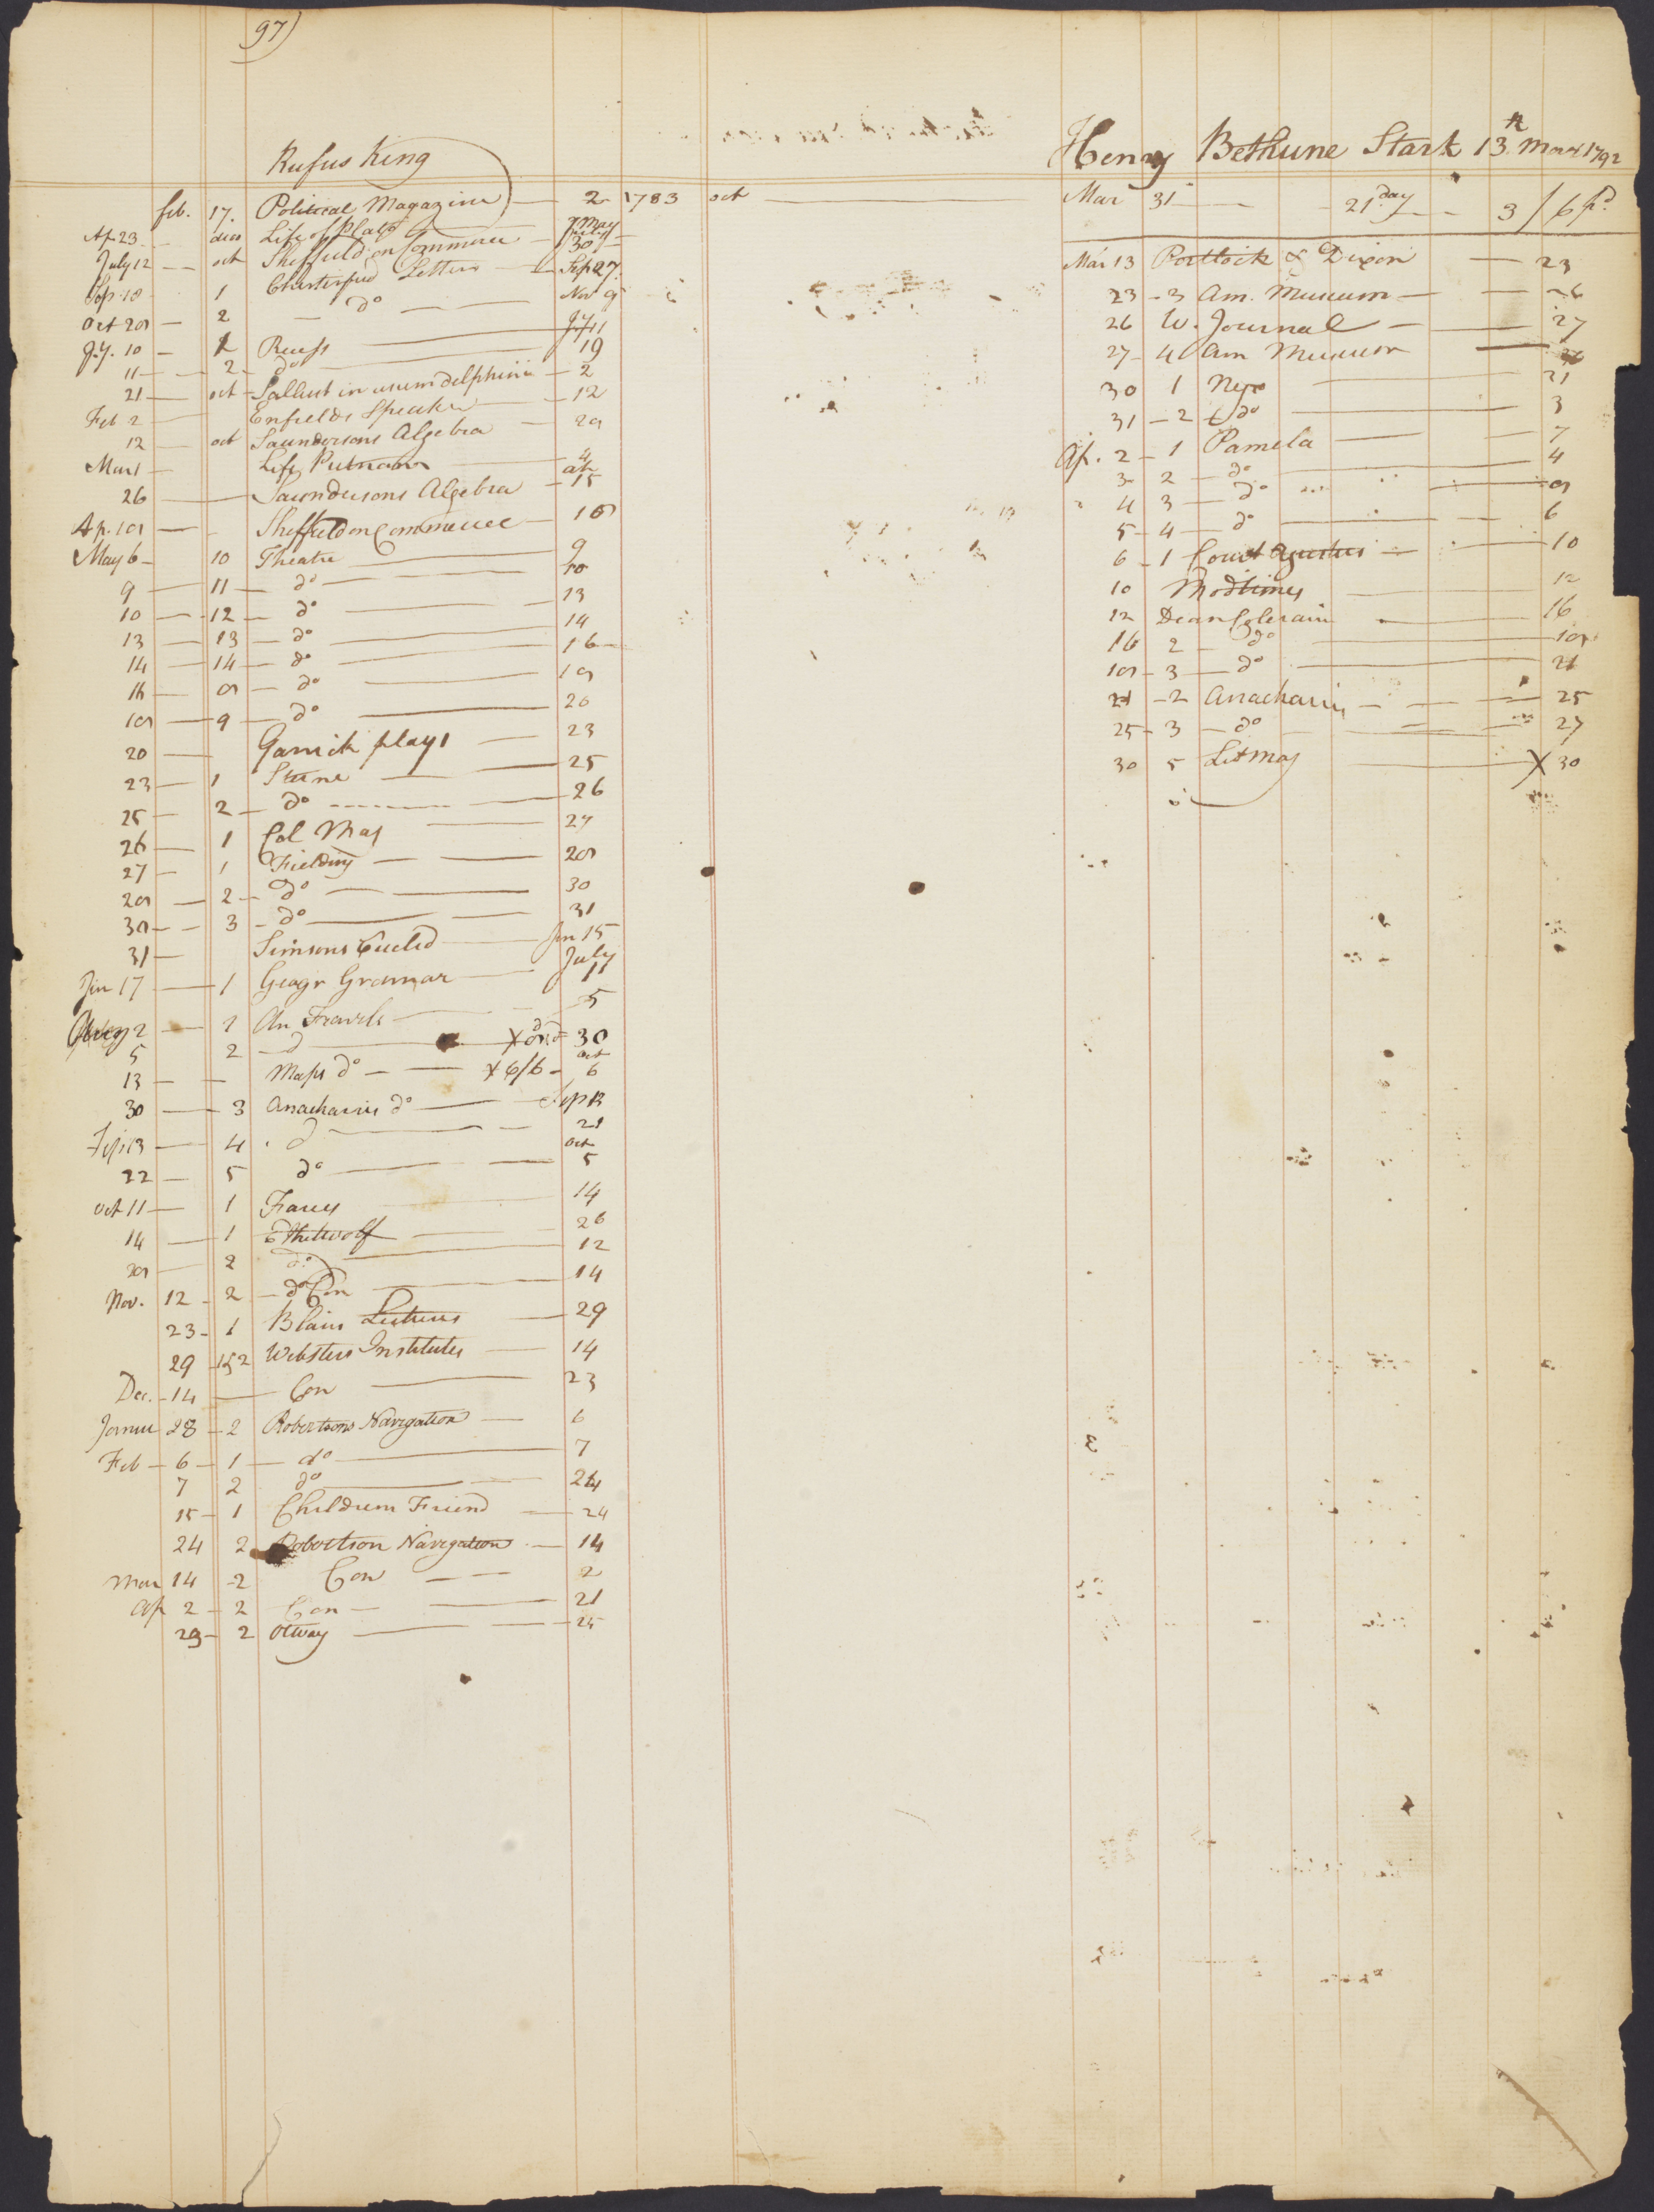 97)
Rufus King
feb. 17. Political Magazine 2 1783 oct
Ap 23 duo Life of Plays May
July 12 oct Sheffield on Commerce 30
Sep 18 1 Chesterfield Letters Sep 27.
Oct 28 2 do Nov 9
Jy. 10 1 Jy 11
11 2 do 19
21 oct Sallust in usum delphini 2
Feb 2 Enfields Speaker 12
12 oct Saundersons Algebra 28
Mar 1 Life Putnam
26 Saundersons Algebra 15
Ap. 18 Sheffield on Commerce 18
May 6 10 Theatre 9
9 11 do 10
10 12 do 13
13 13 do 14
14 14 do 16
16 8 do 18
18 9 do 20
20 Garrick plays 23
23 1 Sterne 25
25 2 do 26
26 1 Col Mag 27
27 1 Fielding 28
28 2 do 30
30 3 do 31
31 Simsons Euclid Jun 15
Jun 17 1 Geogr Grammar July 11
Aug 2 1 An Travels 5
5 2 d 30
13 Maps do X 6/6 oct 6
30 3 Anacharsis do Sep 13
Sep 13 4 d 21
22 5 do oct 5
oct 11 1 14
14 1 Ethelwolf 26
28 2 do 12
Nov. 12 2 do Con 14
23 1 Blairs Lectures 29
29 1 & 2 Websters Institutes 14
Dec. 14 Con 23
Janua 28 2 Robertsons Navigation 6
Feb 6 1 do 7
7 2 do 24
15 1 Childrens Friend 24
24 2 Robertson Navigation 14
Mar 14 2 Con 2
Ap 2 2 Con 21
23 2 Otway 25
Henry Bethune Start 13th Mar 1792
Mar 31 21 day 3/6 pd
Mar 13 Portlock & Dixon 23
23 3 Am. Museum 26
26 W. Journal 27
27 4 Am Museum
30 1 31
31 2 do 3
Ap. 2 1 Pamela 7
3 2 do 4
4 3 do 8
5 4 do 6
6 1 10
10 Mod times 12
12 Dean Colerain 16
16 2 do 18
18 3 do 21
21 2 Anacharsis 25
25 3 do 27
30 5 Lit Mag X 30